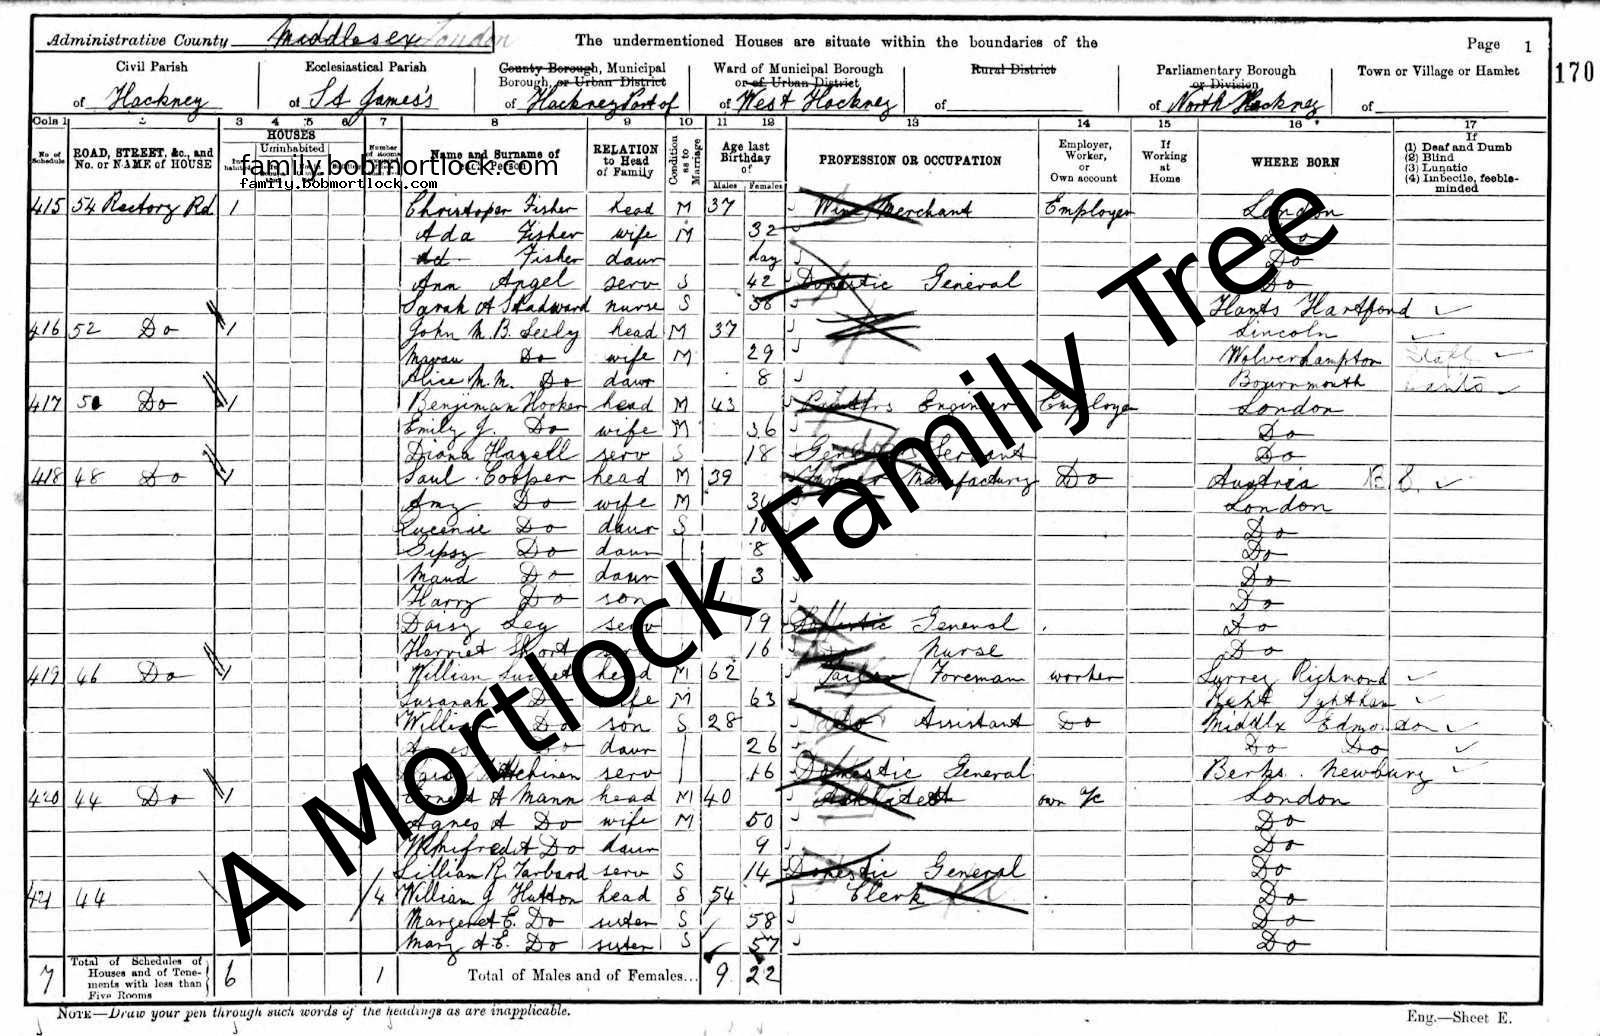 Administrative County Middlesex London The undermentioned Houses are situate within the boundaries of the Page 1
170
Civil Parish Ecclesiastical Parish County Borough, Municipal Borough, or Urban District Ward of Municipal Borough or of Urban District Rural District Parliamentary Borough or Division Town or Village or Hamlet
of Hackney of St James's of Hackney Part of of West Hackney of of North Hackney of
Cols 1 2 3 4 5 6 7 8 9 10 11 12 13 14 15 16 17
No. of Schedule ROAD, STREET, &c., and No. or NAME of HOUSE HOUSES Uninhabited Name and Surname of each Person RELATION to Head of Family Condition as to Marriage Age last Birthday of Males Females PROFESSION OR OCCUPATION Employer, Worker, or Own account If Working at Home WHERE BORN If (1) Deaf and Dumb (2) Blind (3) Lunatic (4) Imbecile, feeble-minded
family.bobmortlock.com
family.bobmortlock.com
415 54 Rectory Rd 1 Christoper Fisher head M 37 Wine Merchant Employer London
Ada Fisher wife M 32 Do
Fisher daur day Do
Ann Angel serv S 42 Domestic General Do
Sarah A Shadward nurse S 38 Hants Hartford
416 52 Do 1 John M. B. Seely head M 37 Lincoln
Do wife M 29 Wolverhampton Staff
Alice M. M. Do daur 8 Bournmouth Hants
417 50 Do 1 Benjiman Hooker head M 43 Engineer Employer London
Emily J. Do wife M 36 Do
Diana Hazell serv S 18 General Servant Do
418 48 Do 1 Saul Cooper head M 39 Manufacturing Do Austria
Amy Do wife M London
Eugenie Do daur S 10 Do
Gipsy Do daur 8 Do
Maud Do daur 3 Do
Harry Do son 1 Do
Daisy Ley serv 19 Domestic General Do
Harriet Short serv 16 Do Nurse Do
419 46 Do 1 William head M 62 Tailor Foreman worker Surrey Richmond
Susanah Do wife M 63 Kent Ightham
William Do son S 28 Do Assistant Do Middlx Edmonton
Agnes Do daur 26 Do Do
serv 16 Domestic General Berks. Newbury
420 44 Do 1 Ernest A Mann head M 40 Architect own a/c London
Agnes A Do wife M 50 Do
Whinfred A Do daur 9 Do
Lillian R. Tarbard serv S 14 Domestic General Do
421 44 4 William J Hutton head S 54 Clerk Do
Margeret E. Do sister S 58 Do
Mary A E. Do sister S 57 Do
7 Total of Schedules of Houses and of Tenements with less than Five Rooms 6 1 Total of Males and of Females... 9 22
NOTE—Draw your pen through such words of the headings as are inapplicable. Eng.—Sheet E.
A Mortlock Family Tree